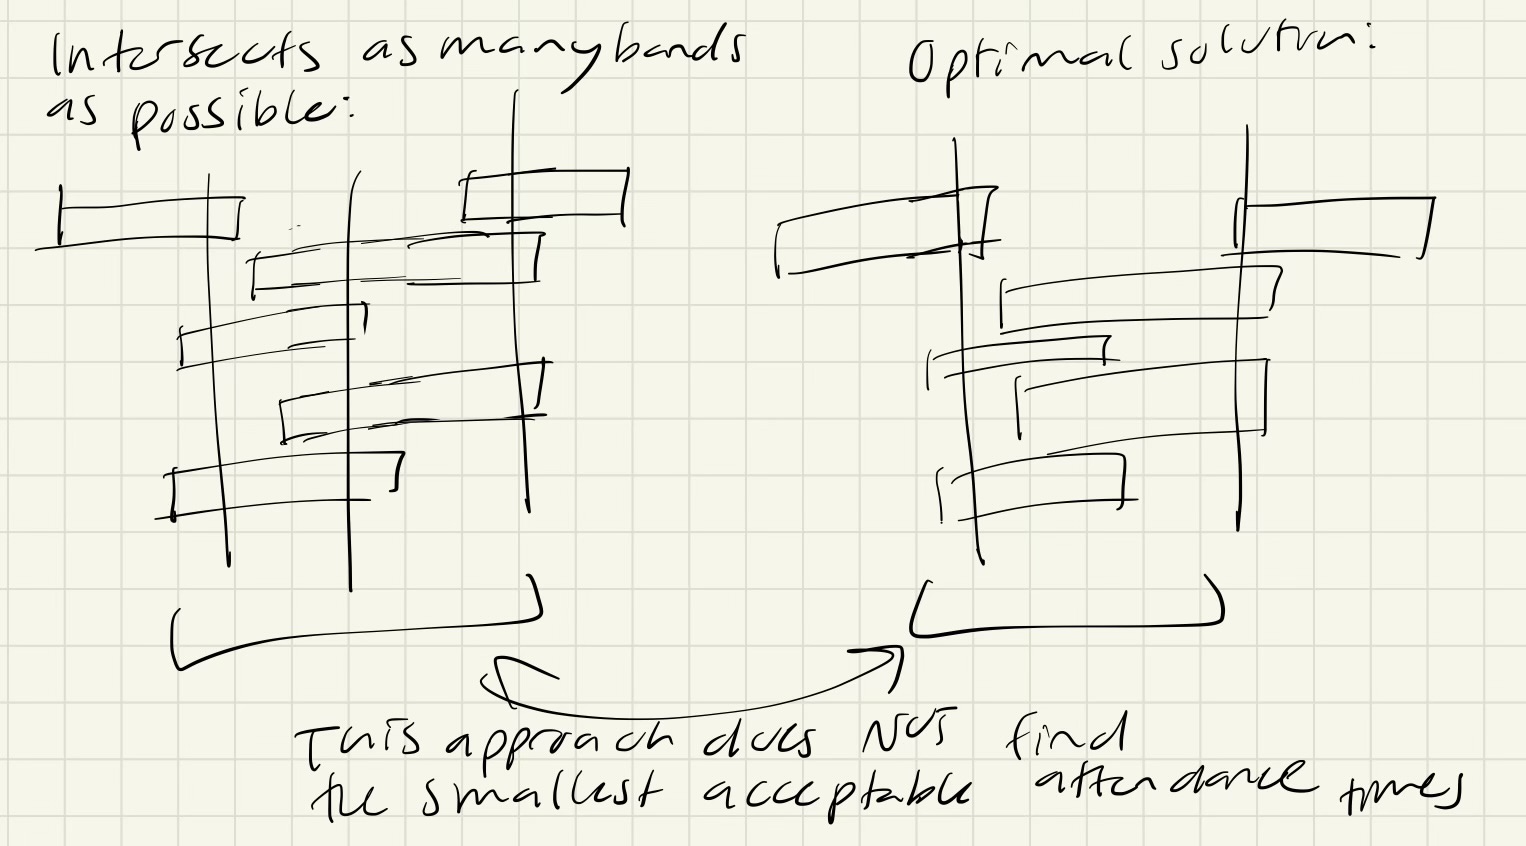 Intersects as many bands
as possible:
Optimal solution:
This approach does NOT find
the smallest acceptable attendance times